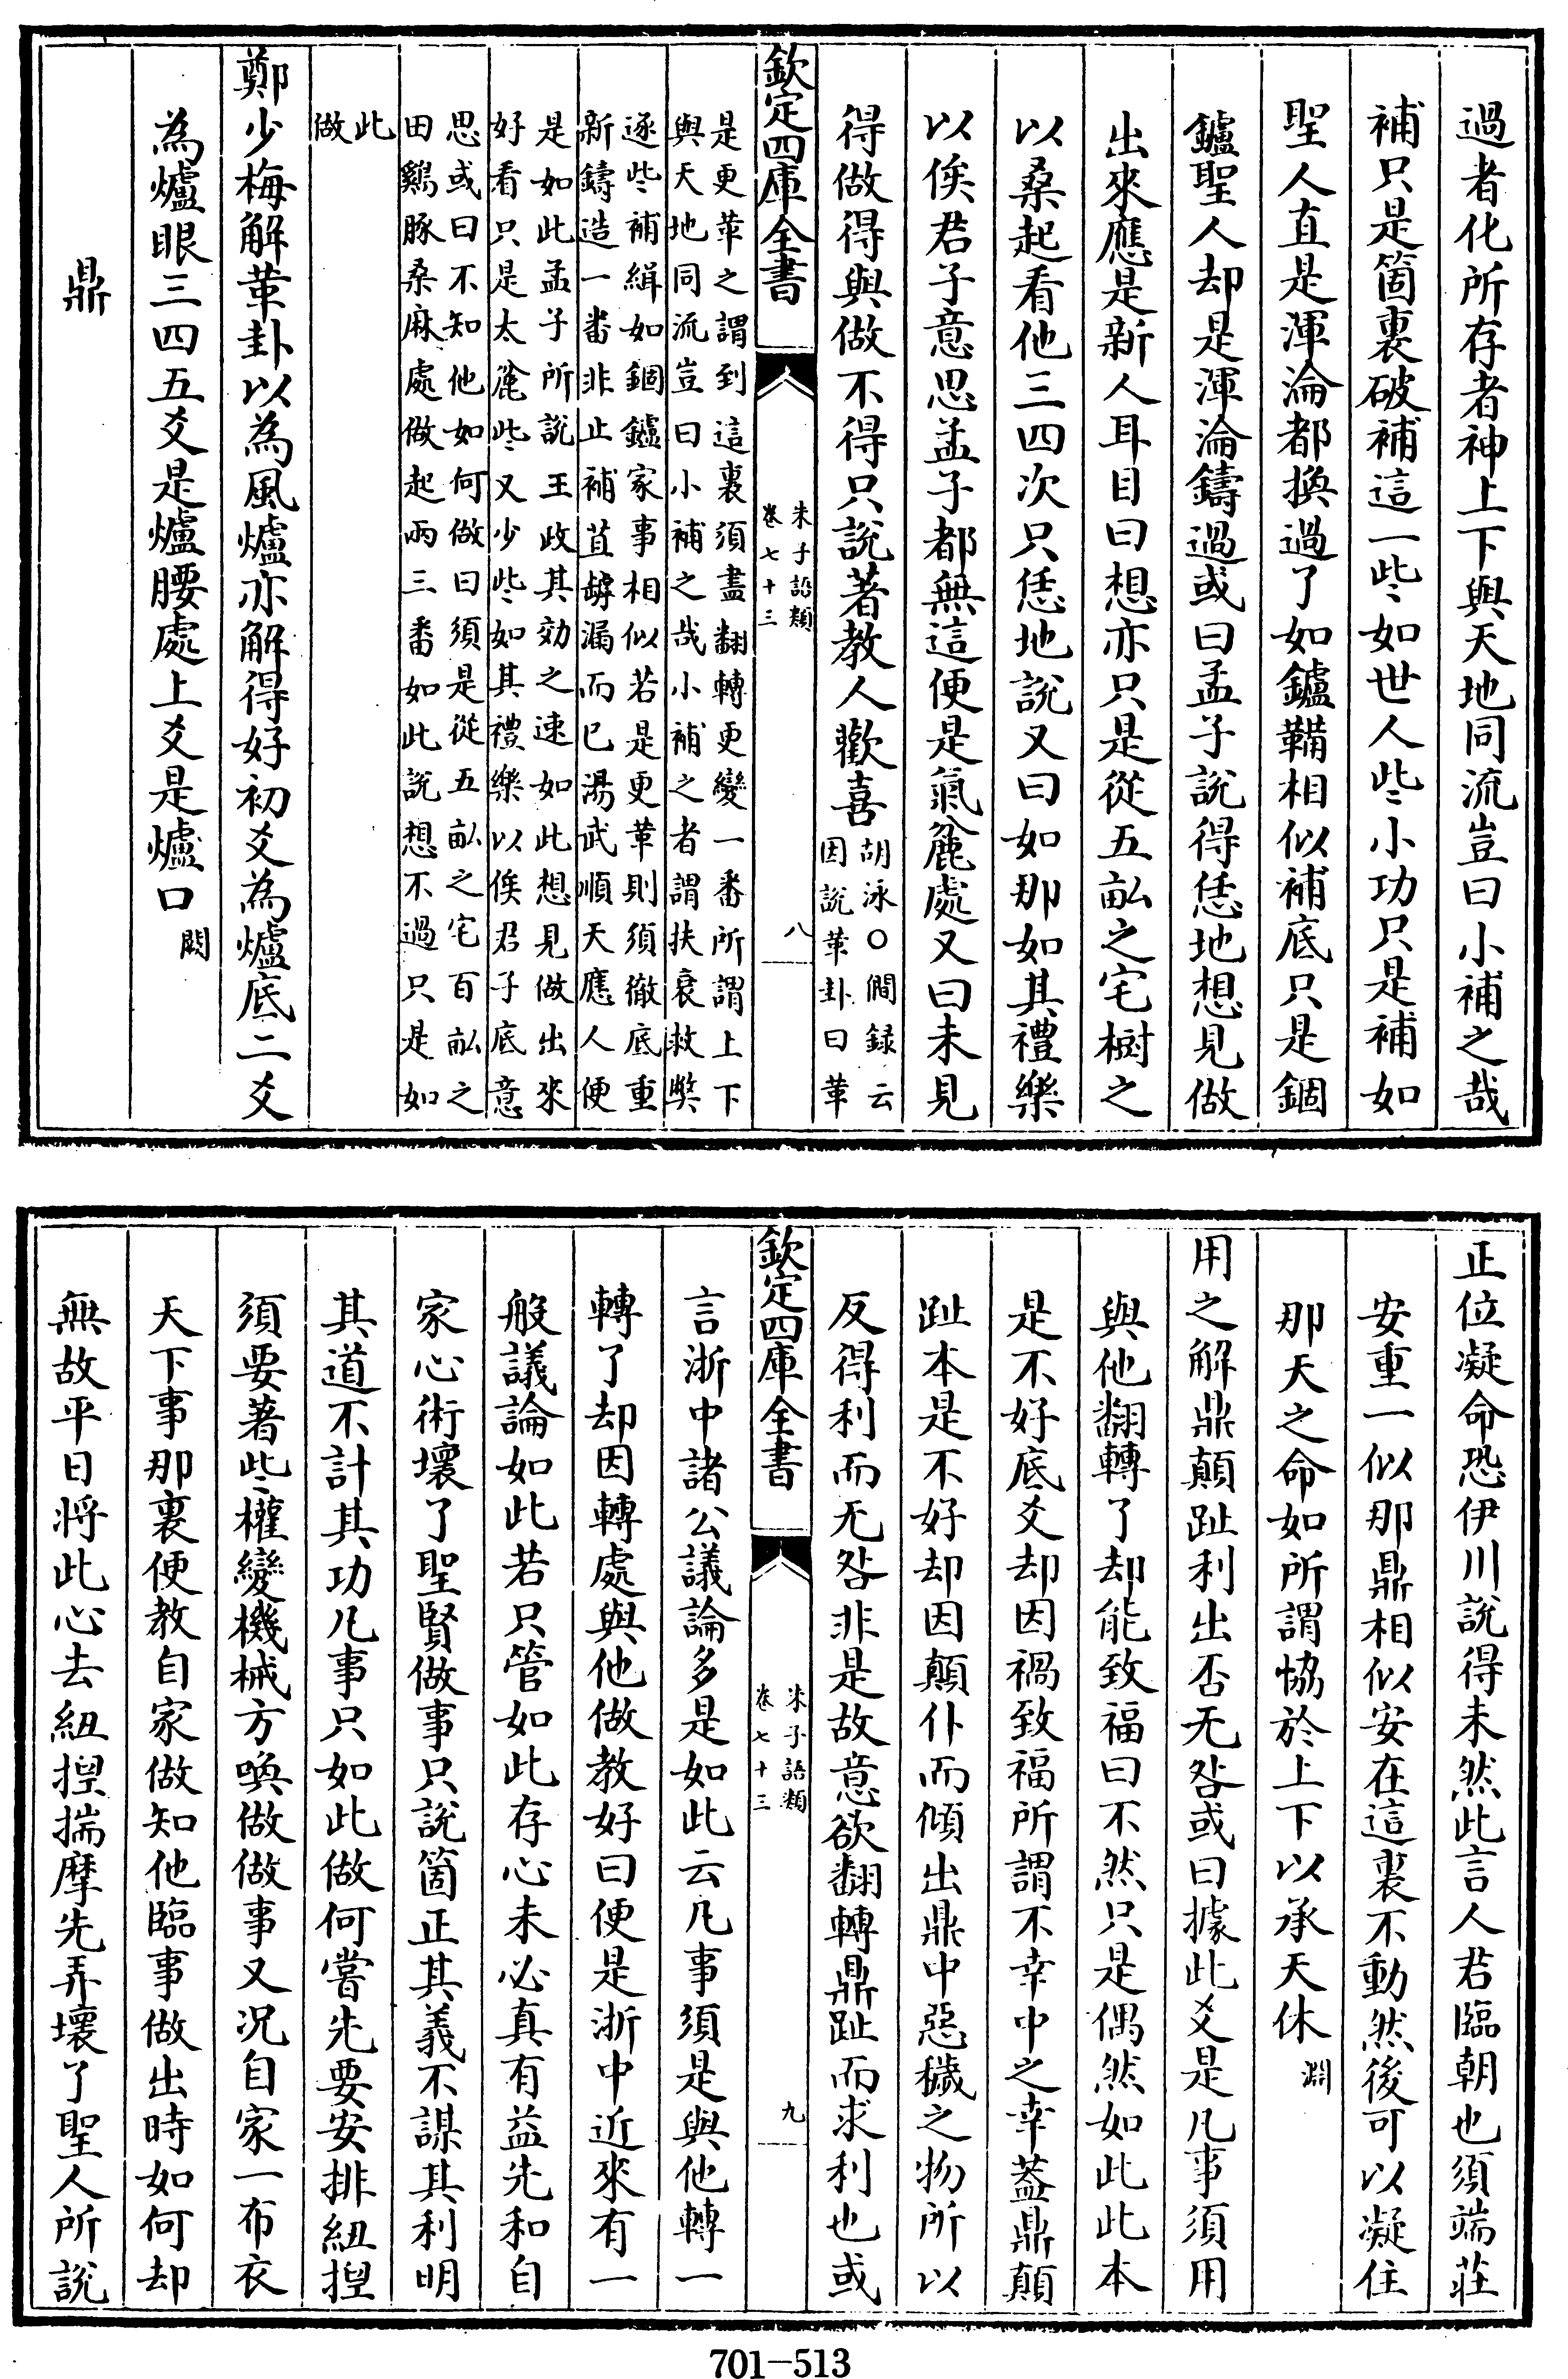 過者化所存者神上下與天地同流豈曰小補之哉
補只是箇裏破補這一些如世人些小功只是補如
聖人直是渾淪都換過了如鑪鞴相似補底只是錮
鑪聖人却是渾淪鑄過或曰孟子說得恁地想見做
出來應是新人耳目曰想亦只是從五畝之宅樹之
以桑起看他三四次只恁地說又曰如那如其禮樂
以俟君子意思孟子都無這便是氣麄處又曰未見
得做得與做不得只說著教人歡喜
胡泳○僩録云
因說革卦曰革
欽定四庫全書
朱子語類
卷七十三
八
是更革之謂到這裏須盡翻轉更變一番所謂上下
與天地同流豈曰小補之哉小補之者謂扶衰救獘
逐些補緝如錮鑪家事相似若是更革則須徹底重
新鑄造一番非止補苴罅漏而已湯武順天應人便
是如此孟子所說王政其効之速如此想見做出來
好看只是太麄些又少些如其禮樂以俟君子底意
思或曰不知他如何做曰須是從五畝之宅百畝之
田鷄豚桑麻處做起兩三番如此說想不過只是如
此
做
鄭少梅解革卦以為風爐亦解得好初爻為爐底二爻
為爐眼三四五爻是爐腰處上爻是爐口
閎
鼎
正位凝命恐伊川說得未然此言人君臨朝也須端莊
安重一似那鼎相似安在這裏不動然後可以凝住
那天之命如所謂恊於上下以承天休
淵
用之解鼎顛趾利出否无咎或曰據此爻是凡事須用
與他翻轉了却能致福曰不然只是偶然如此此本
是不好底爻却因禍致福所謂不幸中之幸蓋鼎顛
趾本是不好却因顛仆而傾出鼎中惡穢之物所以
反得利而无咎非是故意欲翻轉鼎趾而求利也或
欽定四庫全書
朱子語類
卷七十三
九
言浙中諸公議論多是如此云凡事須是與他轉一
轉了却因轉處與他做教好曰便是浙中近來有一
般議論如此若只管如此存心未必真有益先和自
家心術壞了聖賢做事只說箇正其義不謀其利明
其道不計其功凡事只如此做何嘗先要安排紐揑
須要著些權變機械方喚做做事又况自家一布衣
天下事那裏便教自家做知他臨事做出時如何却
無故平日將此心去紐揑揣摩先弄壞了聖人所說
701-513